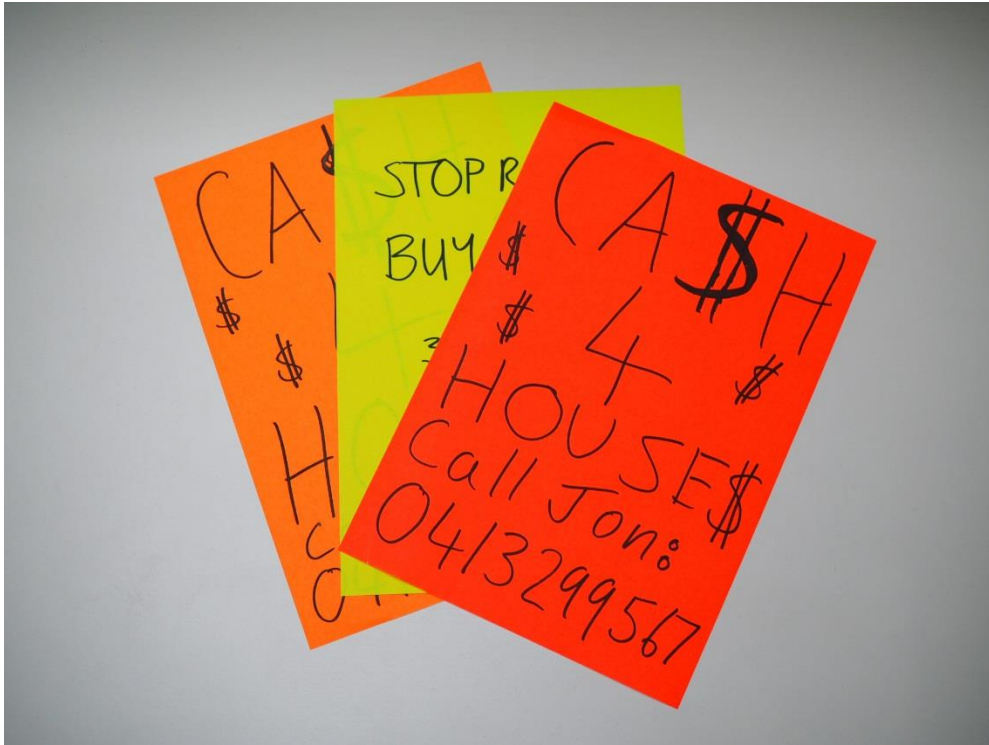 CA$
$
$
H
STOP R
BUY
CA$H
$
$ 4 $
HOUSE$
Call Jon:
0413299567